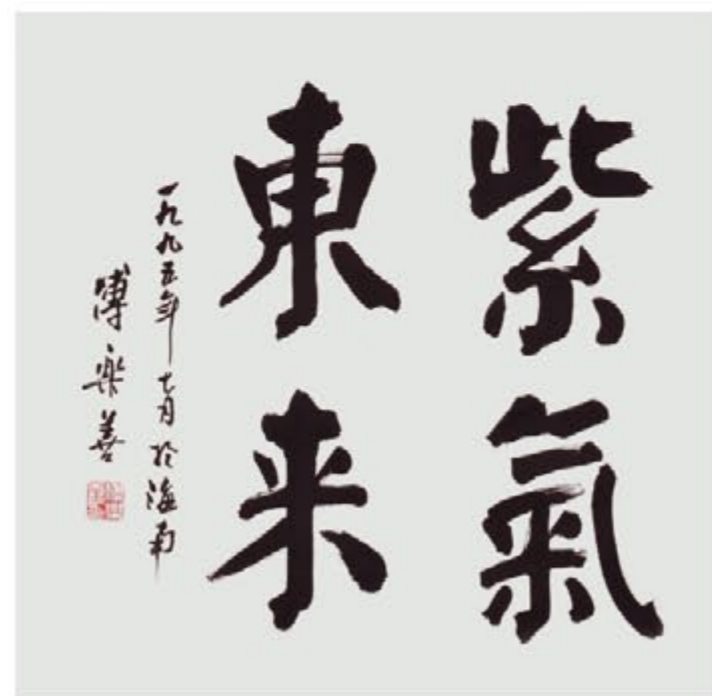 紫氣
東来
一九九五年七月於海南
傅樂善